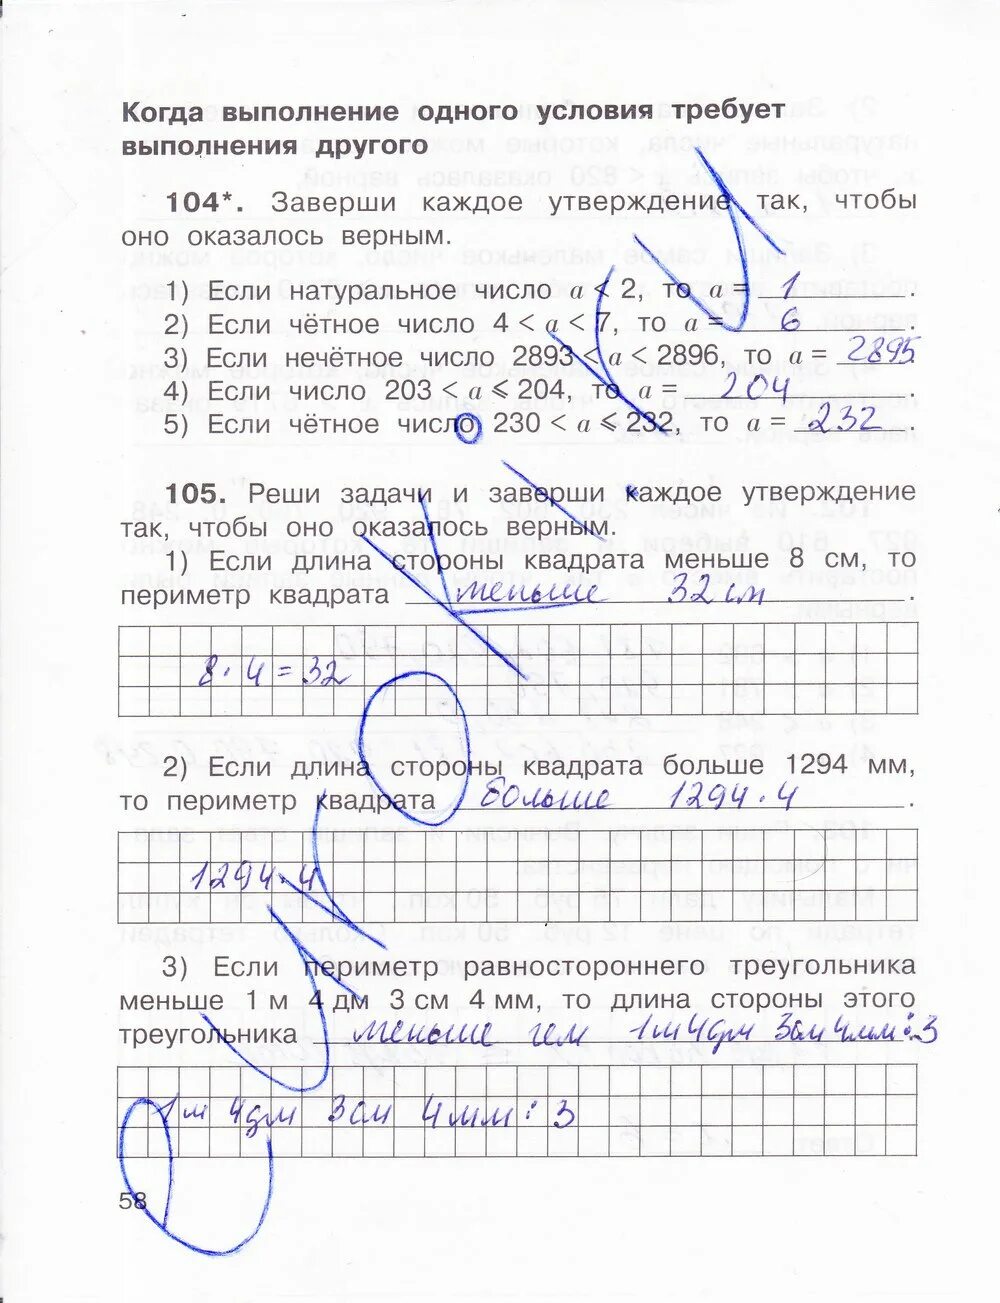 Когда выполнение одного условия требует
выполнения другого
104*. Заверши каждое утверждение так, чтобы
оно оказалось верным.
1) Если натуральное число a < 2, то a = 1 .
2) Если чётное число 4 < a < 7, то a = 6 .
3) Если нечётное число 2893 < a < 2896, то a = 2895
4) Если число 203 < a ⩽ 204, то a = 204
5) Если чётное число 230 < a ⩽ 232, то a = 232 .
105. Реши задачи и заверши каждое утверждение
так, чтобы оно оказалось верным.
1) Если длина стороны квадрата меньше 8 см, то
периметр квадрата меньше 32 см .
8 · 4 = 32
2) Если длина стороны квадрата больше 1294 мм,
то периметр квадрата больше 1294 · 4 .
1294 · 4
3) Если периметр равностороннего треугольника
меньше 1 м 4 дм 3 см 4 мм, то длина стороны этого
треугольника меньше чем 1м 4дм 3см 4мм : 3
1м 4дм 3см 4мм : 3
58